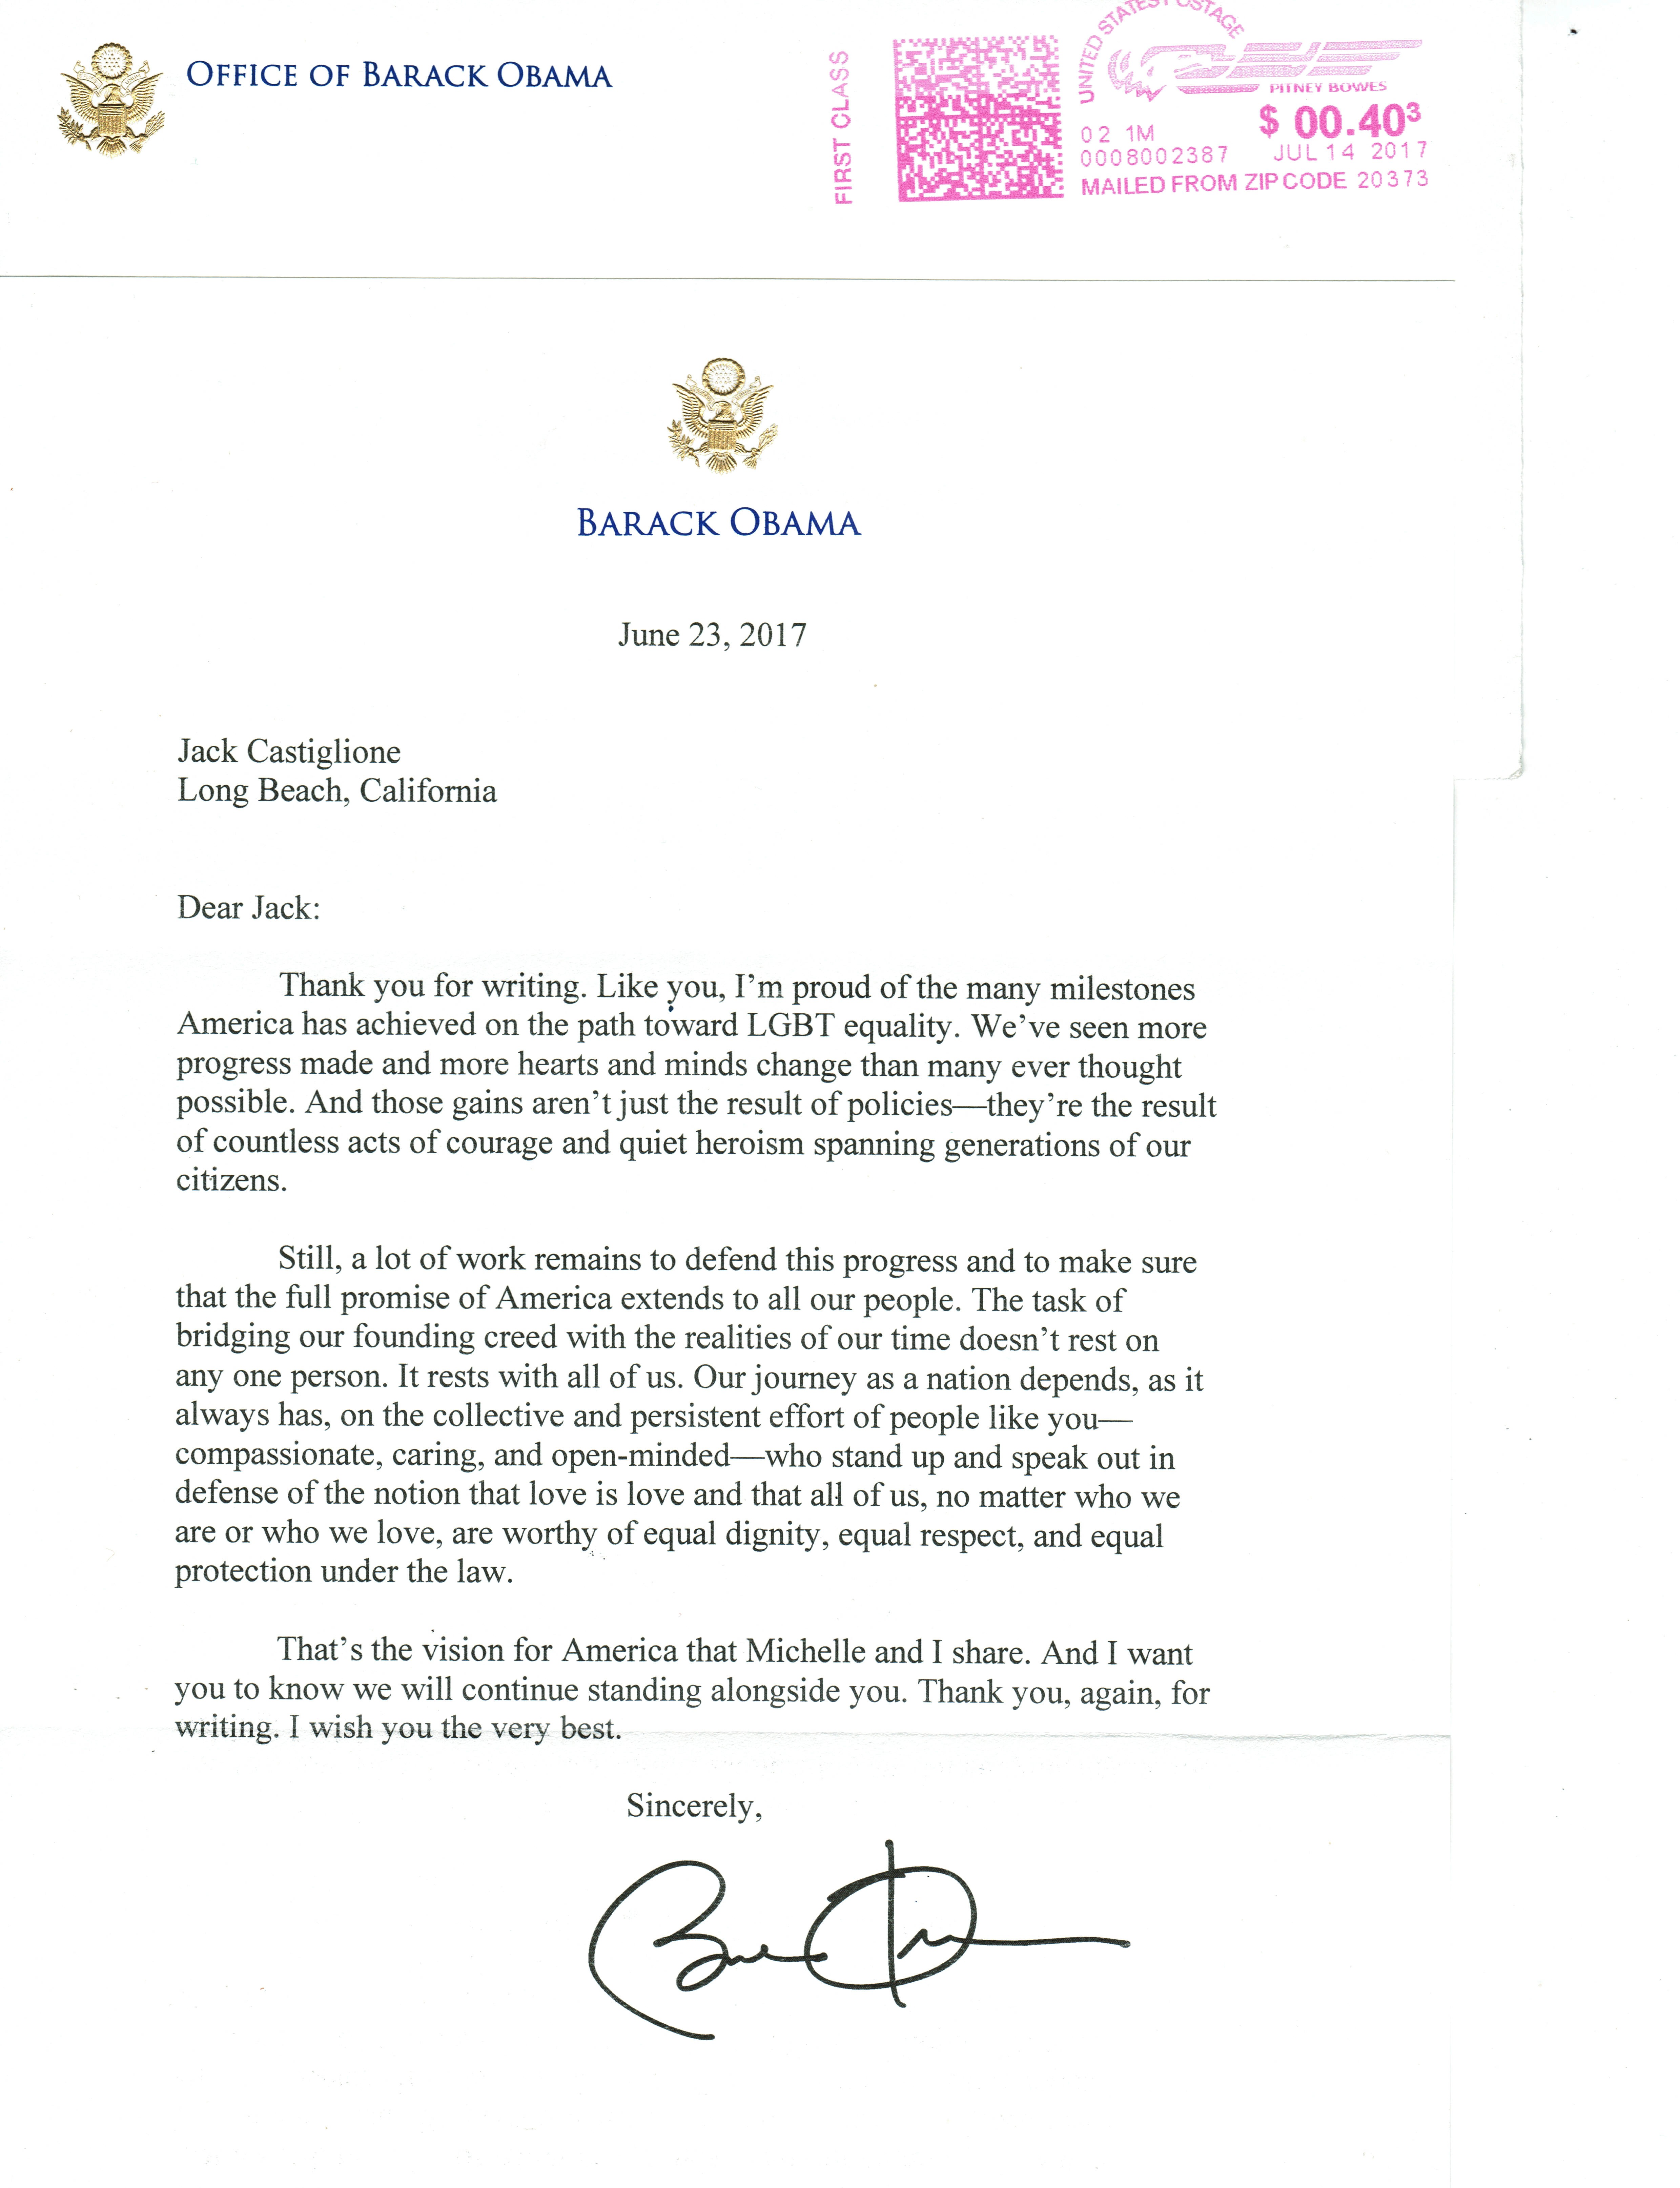 OFFICE OF BARACK OBAMA
FIRST CLASS
UNITED STATES POSTAGE
PITNEY BOWES
02 1M
$ 00.40³
0008002387
JUL 14 2017
MAILED FROM ZIP CODE 20373
BARACK OBAMA
June 23, 2017
Jack Castiglione
Long Beach, California
Dear Jack:
Thank you for writing. Like you, I’m proud of the many milestones
America has achieved on the path toward LGBT equality. We’ve seen more
progress made and more hearts and minds change than many ever thought
possible. And those gains aren’t just the result of policies—they’re the result
of countless acts of courage and quiet heroism spanning generations of our
citizens.
Still, a lot of work remains to defend this progress and to make sure
that the full promise of America extends to all our people. The task of
bridging our founding creed with the realities of our time doesn’t rest on
any one person. It rests with all of us. Our journey as a nation depends, as it
always has, on the collective and persistent effort of people like you—
compassionate, caring, and open-minded—who stand up and speak out in
defense of the notion that love is love and that all of us, no matter who we
are or who we love, are worthy of equal dignity, equal respect, and equal
protection under the law.
That’s the vision for America that Michelle and I share. And I want
you to know we will continue standing alongside you. Thank you, again, for
writing. I wish you the very best.
Sincerely,